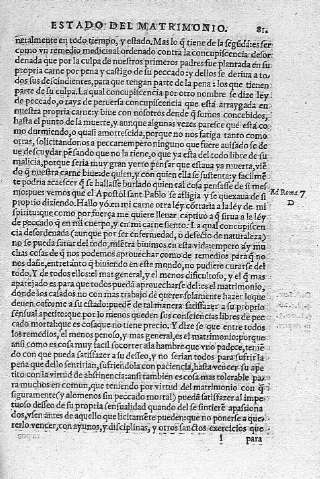 ESTADO DEL MATRIMONIO. 81.
neralmente en todo tiempo, y estado. Mas lo q̃ tiene de la segũda es ser
como vn remedio medicinal ordenado contra la concupiscencia desor-
denada que por la culpa de nuestros primeros padres fue plantada en su
propria carne por pena y castigo de su peccado: y dellos se deriua a to-
dos sus decindientes, para que tengan parte de la pena: los que tienen
parte de su culpa. La qual concupiscencia por otro nombre se dize ley
de peccado, o rayz de peruersa concupiscencia que está arraygada en
nuestra propria carne: y biue con nosotros dende q̃ somos concebidos,
hasta el punto de la muerte, y aunque algunas vezes parece que está co
mo durmiendo, o quasi amortescida, porque no nos fatiga tanto como
otras, solicitandonos a peccar: empero ninguno que fuere auisado se de
ue descuydar pensando que no la tiene, o que ya está del todo libre de su
malicia, porque seria muy gran yerro pensar que estaua ya muerta, viẽ
do q̃ nuestra carne biue: de quien, y con quien ella se sustenta: y facilmẽ
te podria acaescer q̃ se hallasse burlado quien tal cosa pensasse de si mes
mo: pues vemos que el Apostol sant Pablo se afligia y se quexaua de si
proprio diziendo. Hallo yo en mi carne otra ley cõtraria a la ley de mi
spiritu: que como por fuerça me quiere lleuar captiuo a q̃ sirua a le ley
de peccado q̃ en mi cuerpo, y en mi carne siento: La qual concupiscen
cia desordenada (aun que por ser enfermedad, o defecto de naturaleza)
no se pueda quitar del todo, miẽtra biuimos en esta vida: empero ay mu
chas cosas de q̃ nos podemos aprouechar como de remedios para q̃ no
nos dañe, entretãto q̃ biuiendo en este mundo, no pudiere curarse del
todo. Y de todos ellos el mas general, y el menos dificultoso, y el q̃ mas
aparejado es para que todos puedã aprouecharse del: es el matrimonio,
donde los casados no con mas trabajo de querer solamente hazer lo que
deuen cõforme a su estado: puedẽ tal maña satisfazer a su proprio
sensual apetito: que por lo menos queden sus consciencias libres de pec
cado mortal: que es cosa que no tiene precio. Y dize se que entre todos
los remedios, el menos penoso, y mas general, es el matrimonio: porque
ansi como es cosa muy facil socorrer a la hambre que vno padece, tenië
do con que pueda satisfazer a su desseo, y no serian todos para sufrir la
pena que dello sentirian, sufriendola con paciencia, hasta vencer su ape
tito con la virtud de abstinencia: ansi tambien es cosa mas tolerable pa
ra muchos en comun, que teniendo por virtud del matrimonio con q̃
siguramente (y a lo menos sin peccado mortal) puedã satisfazer al impe-
tuoso desseo de su propria sensualidad quando del se sintierẽ apassiona
dos, vsen antes de aquello que licitamẽte pueden: que no ponerse a que-
rerlo vencer, con ayunos, y disciplinas, y otros sanctos exercicios que
Ad Roma. 7
D
l
para